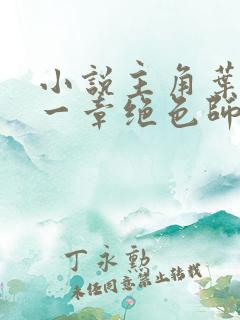 小说主角叶
一章绝色师
丁永勲
未经同意禁止转载